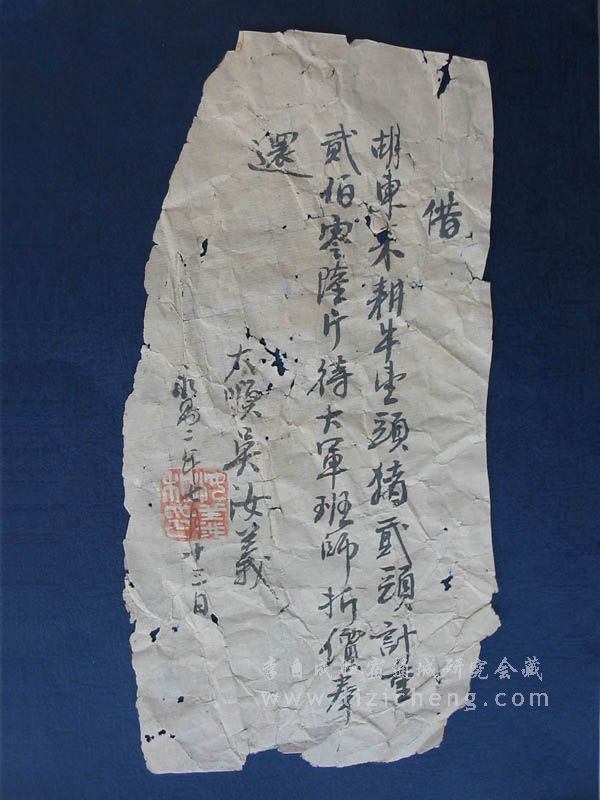 借
胡東来耕牛壹頭猪貳頭計重
貳佰零陸斤待大軍班師折價奉
還
大順吳汝義
永昌二年七月十三日
李自成 研究会藏
www.lizicheng.com